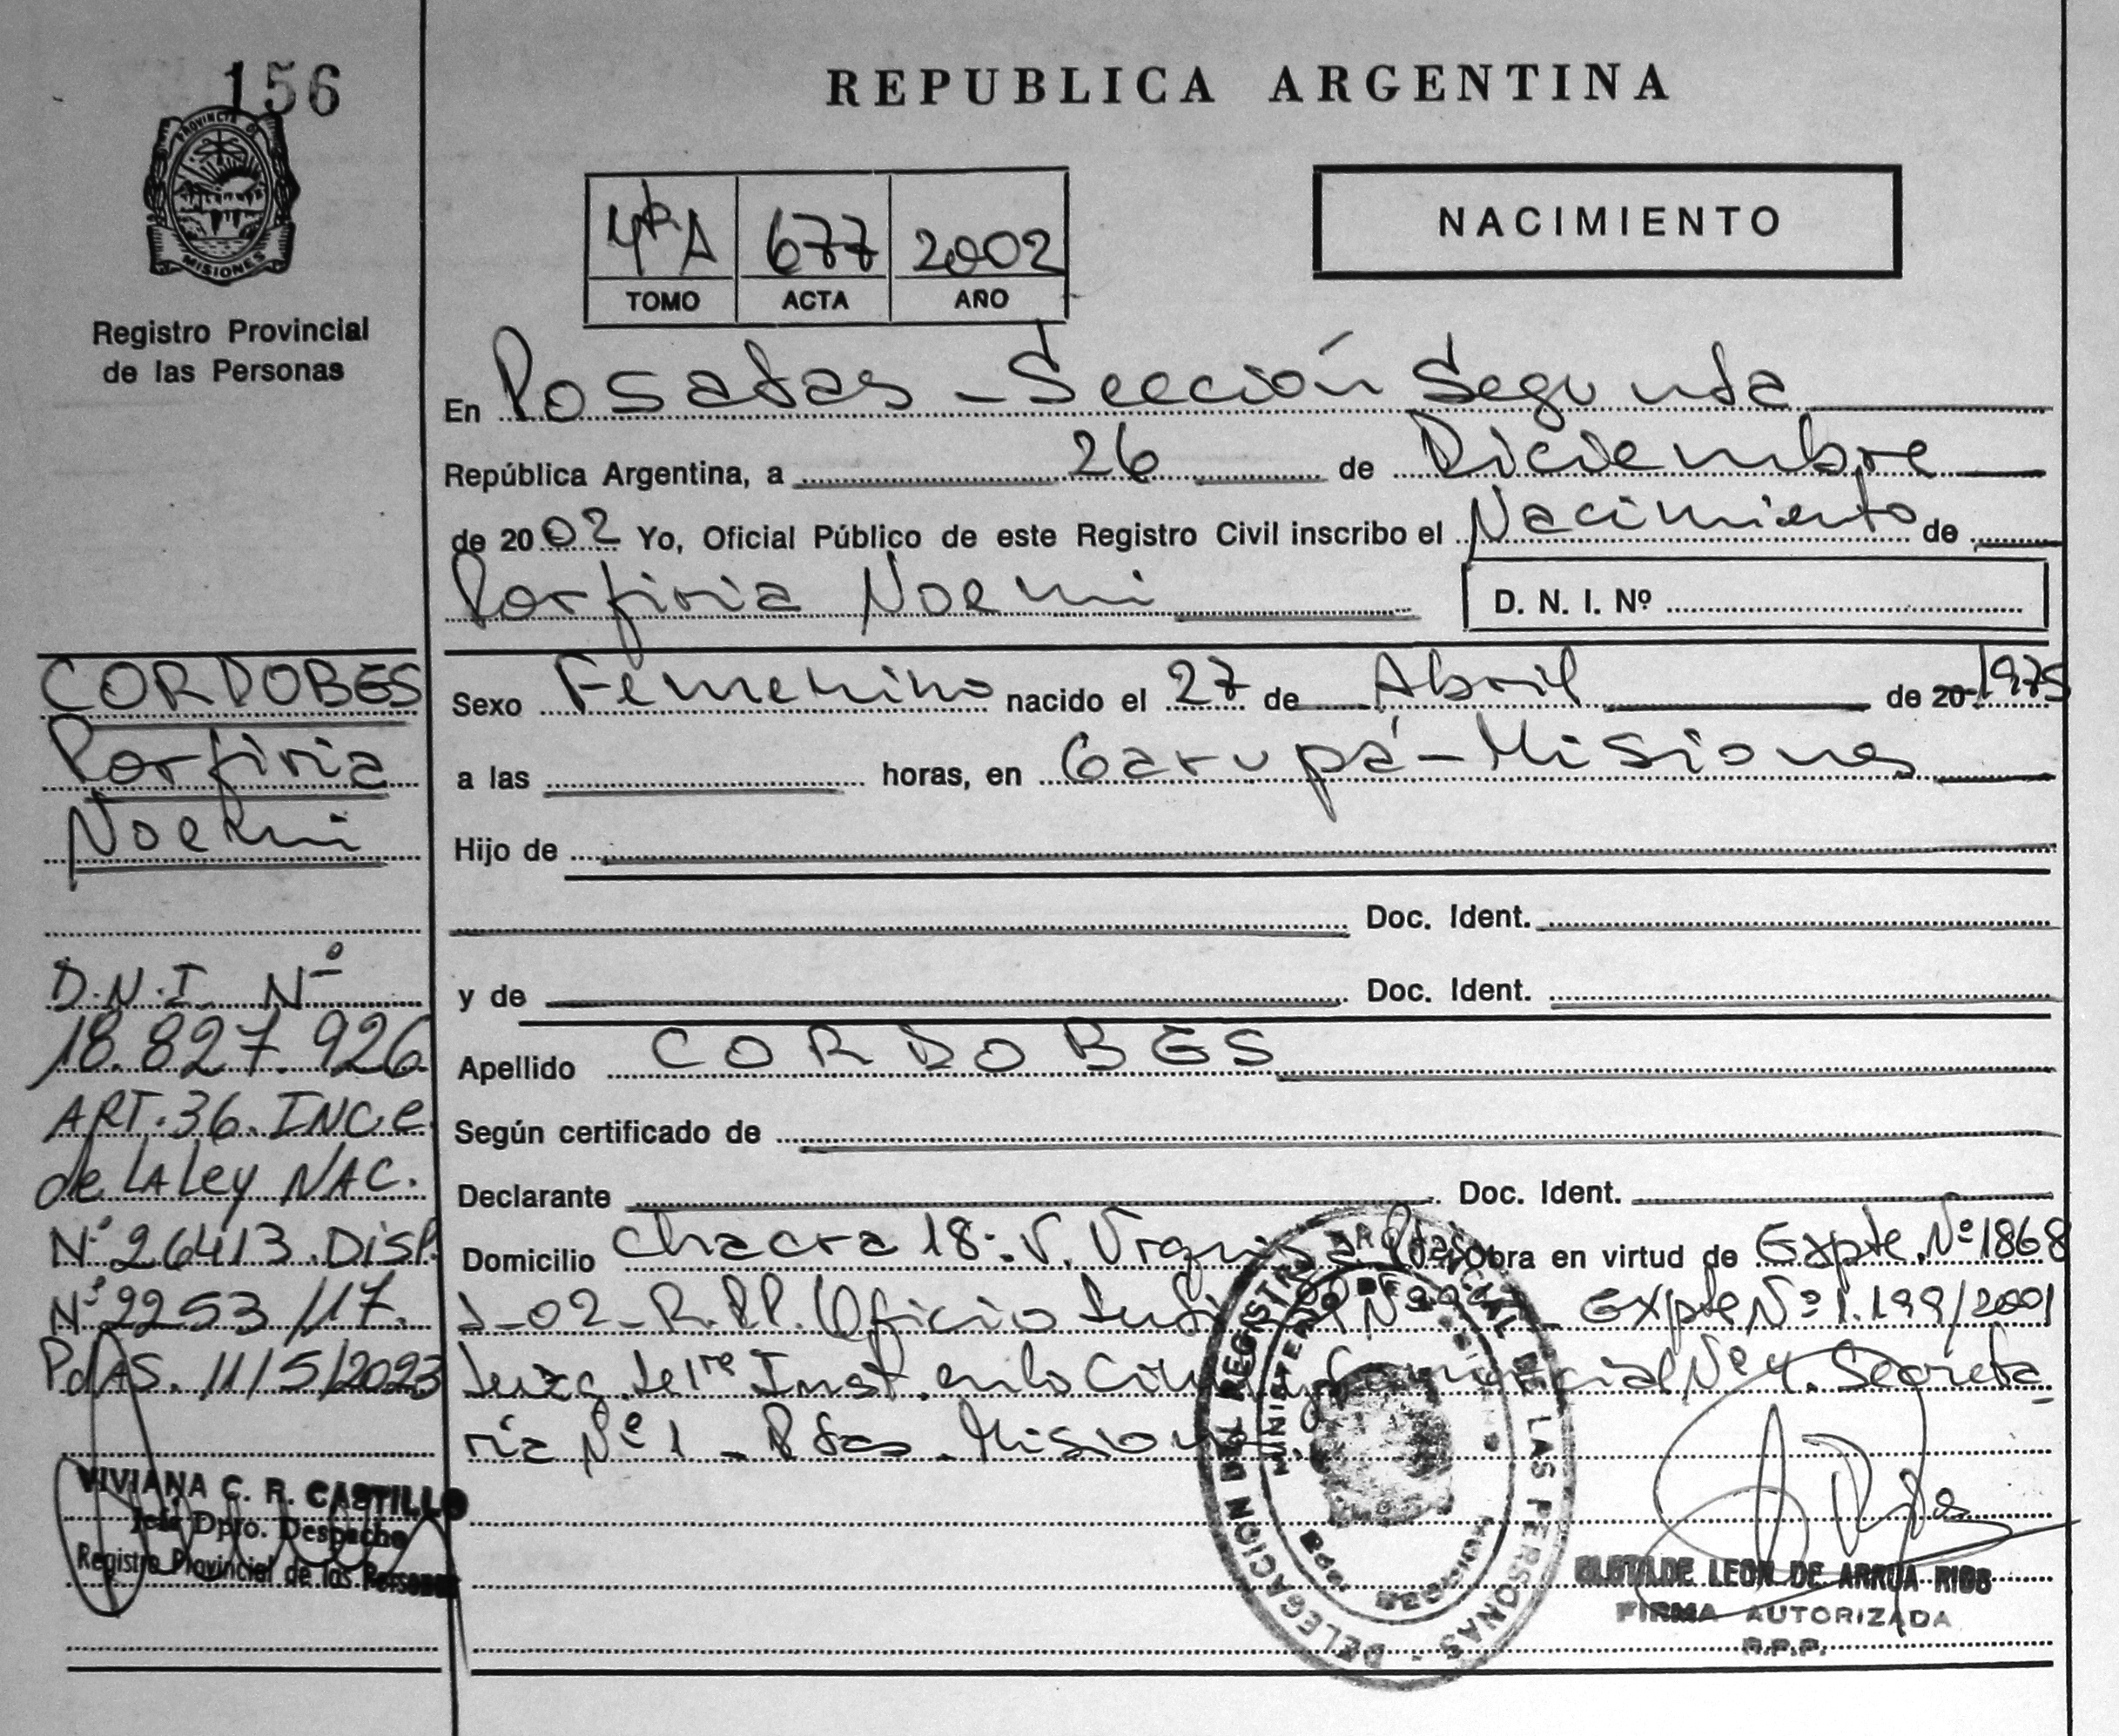 156
PROVINCIA DE
MISIONES
Registro Provincial
de las Personas
CORDOBES
Porfiria
Noemi
D.N.I. Nº
18.827.926
ART. 36. INC. e
de LA Ley NAC.
Nº 26413. DISP.
Nº 2253/17.
PdAS. 11/5/2023
VIVIANA C. R. CASTILLO
Jefa Dpto. Despacho
Registro Provincial de las Personas
REPUBLICA ARGENTINA
4ºA 677 2002
TOMO ACTA AÑO
NACIMIENTO
En Posadas - Sección Segunda
República Argentina, a 26 de Diciembre
de 2002 Yo, Oficial Público de este Registro Civil inscribo el Nacimiento de
Porfiria Noemi D. N. I. Nº
Sexo Femenino nacido el 27 de Abril de 20 1975
a las horas, en Garupá - Misiones
Hijo de
Doc. Ident.
y de Doc. Ident.
Apellido CORDOBES
Según certificado de
Declarante Doc. Ident.
Domicilio chacra 18-. V. Urquiza Obra en virtud de Expte. Nº 1868
J-02-R.P.P. Oficio Judicial Nº - Expte Nº 1.199/2001
Juzg. de 1re Inst. en lo Civil y Comercial Nº 4. Secreta
ria Nº 1 - Pdas - Misiones
DELEGACION DEL REGISTRO PROVINCIAL DE LAS PERSONAS
MINISTERIO DE
CLOTILDE LEON DE ARRUA RIOS
FIRMA AUTORIZADA
R.P.P.